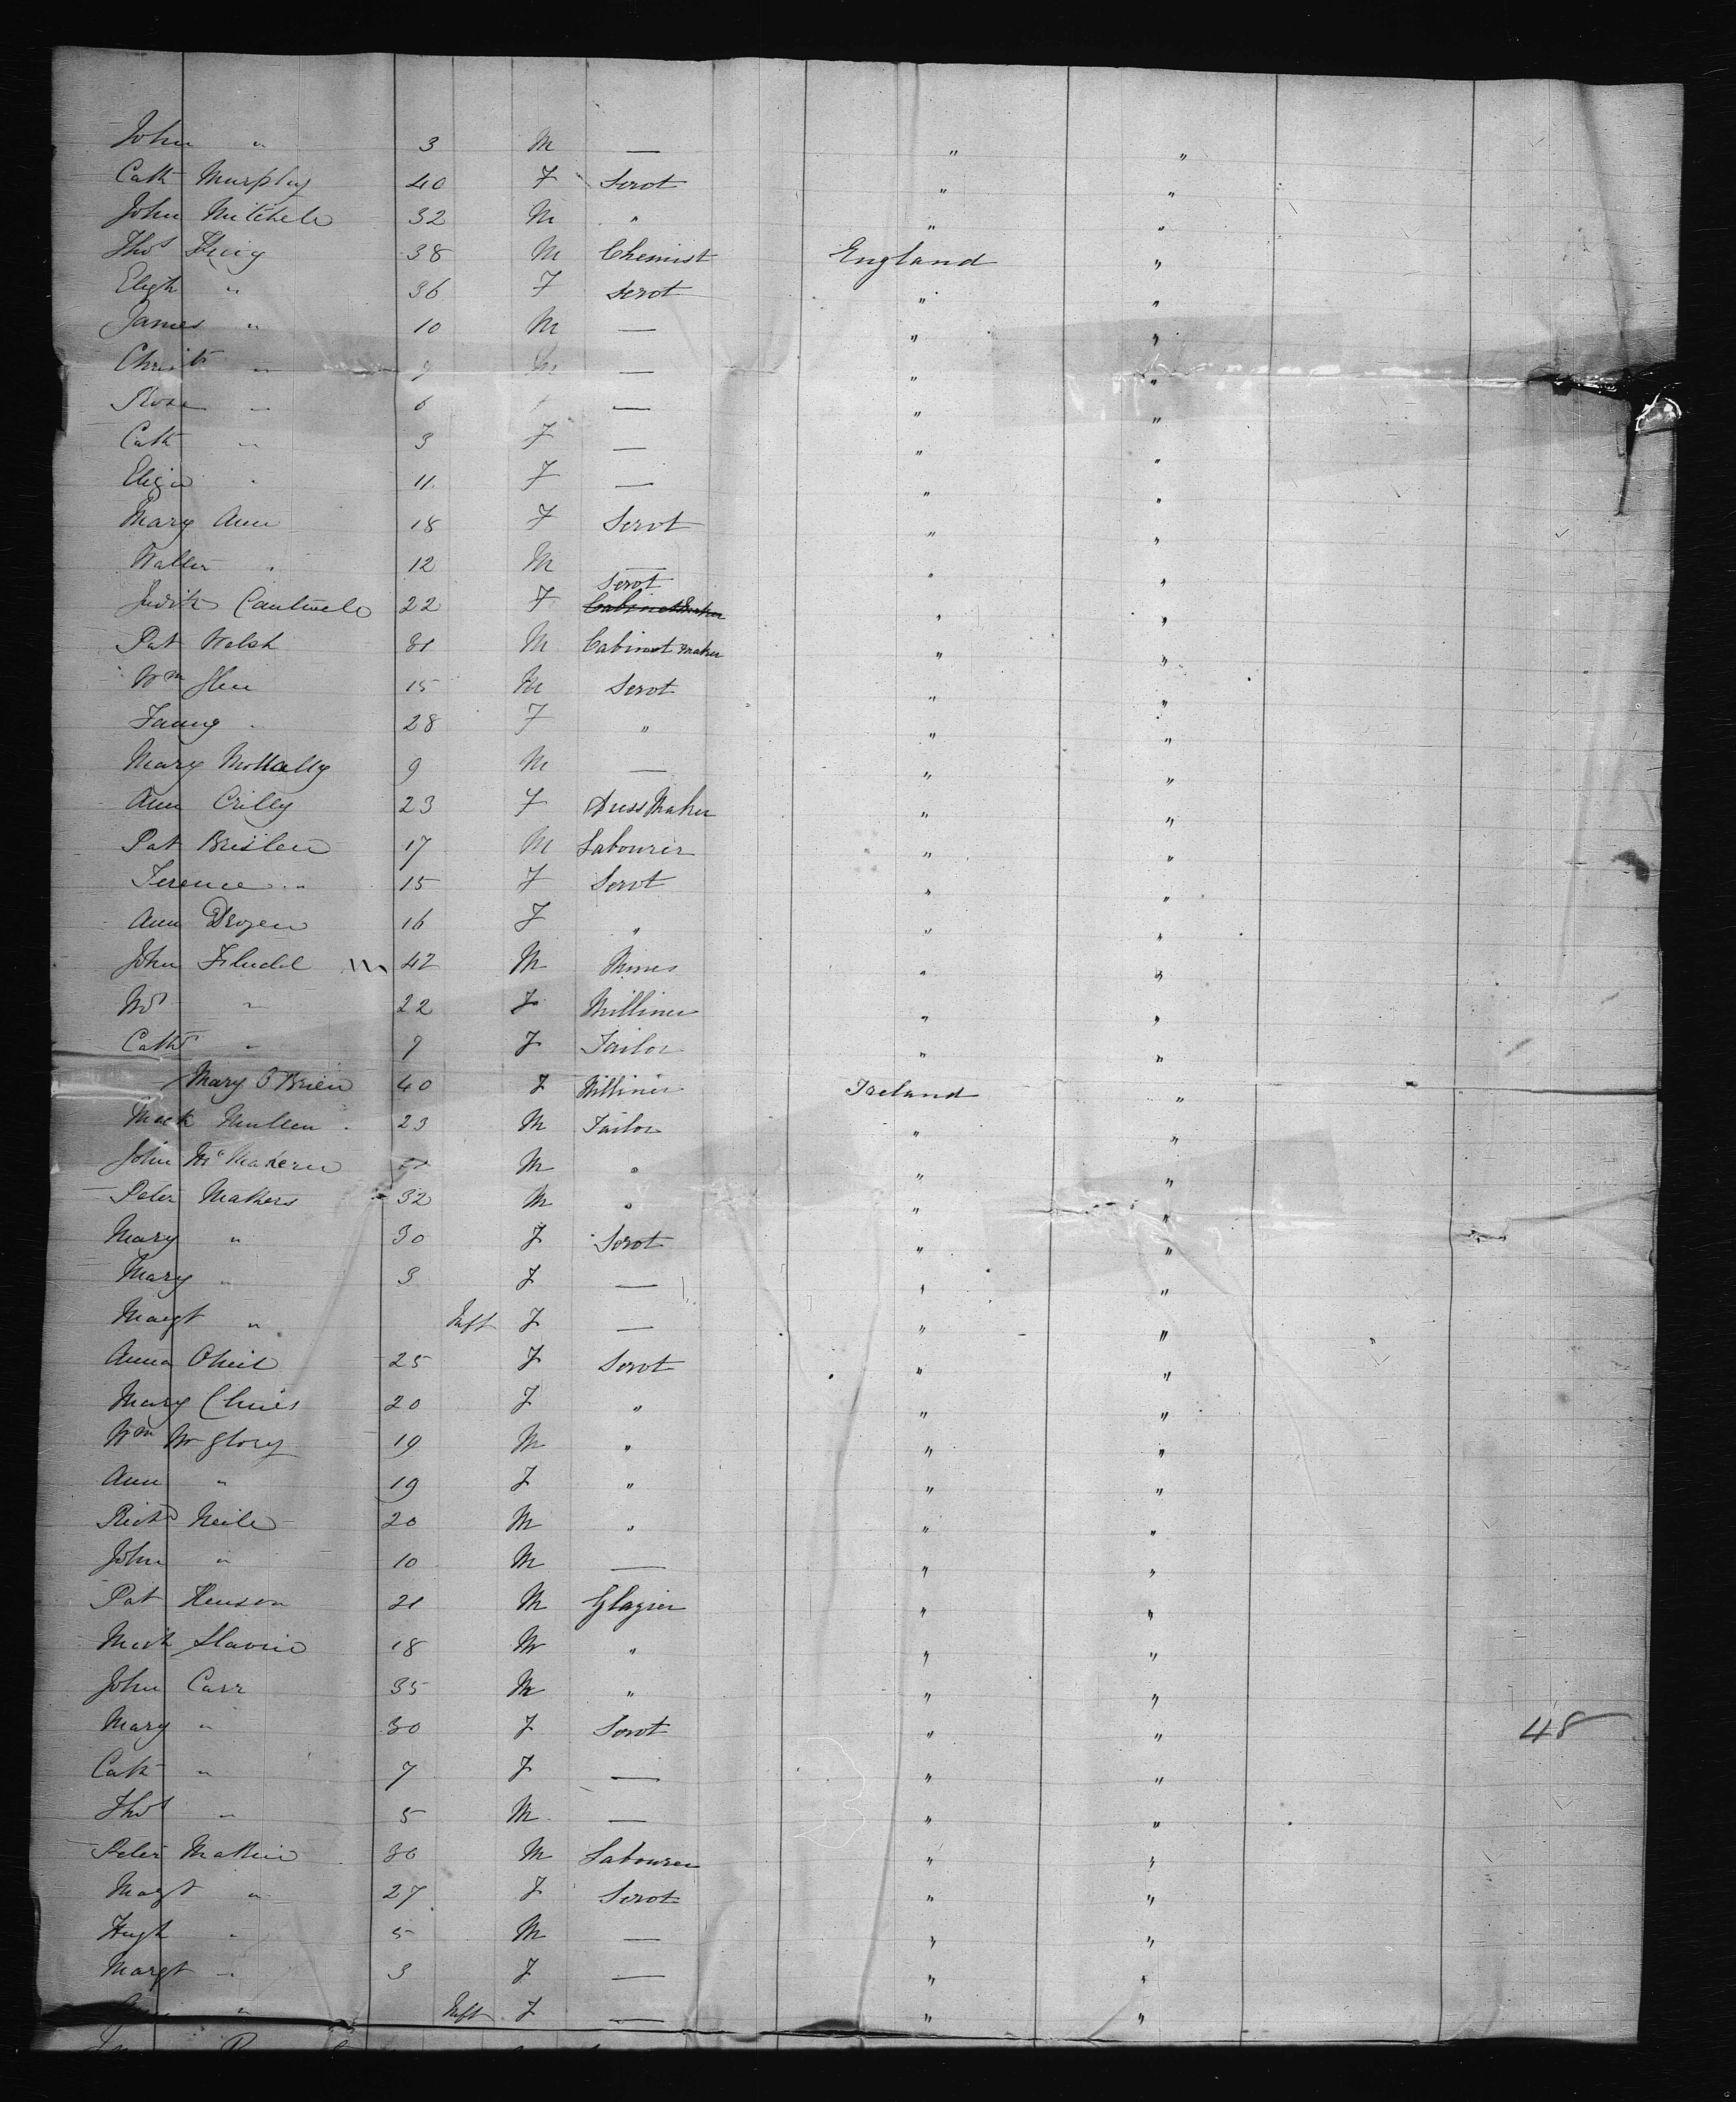 John " 3 M — " "
Cath Murphy 40 F Servt " "
John Mitchele 32 M " " "
Thos King 38 M Chemist England "
Eligh " 36 F Servt " "
James " 10 M — " "
Christr " 9 M — " "
Rose " 6 — " "
Cath " 3 F — " "
Eliza " 11 F — " "
Mary Ann 18 F Servt " "
Walter " 12 M — " "
Servt
Judith Cantwele 22 F Cabinet Maker " "
Pat Walsh 31 M Cabinet Maker " "
Wm Glen 15 M Servt " "
Fanny " 28 F " " "
Mary McNally 9 M — " "
Ann Crilly 23 F Dress Maker " "
Pat Brislen 17 M Labourer " "
Terence " 15 F Servt " "
Ann 16 F " " "
John 42 M " "
" 22 F Milliner " "
Cathe " 9 F Tailor " "
Mary O'Brien 40 F Milliner Ireland "
Mullen 23 M Tailor " "
John M " " "
Peter Mathers 32 M " " "
Mary " 30 F Servt " "
Mary " 3 F — " "
Margt " Inft F — " "
Anna Oneil 25 F Servt " "
Mary 20 F " " "
Wm McGlory 19 M " " "
Ann " 19 F " " "
Richd Neile 20 M " " "
John " 10 M — " "
Pat Henson 21 M Glazier " "
Mich Slavin 18 M " " "
John Carr 35 M " " "
Mary " 30 F Servt " " 48
Cath " 7 F — " "
Thos " 5 M — " "
Peter 30 M Labourer " "
Margt " 27 F Servt " "
Hugh " 5 M — " "
Margt " 3 F — " "
" Inft F — " "